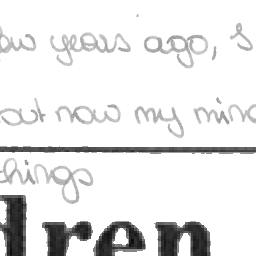 few years ago, I
but now my mind
things
dren